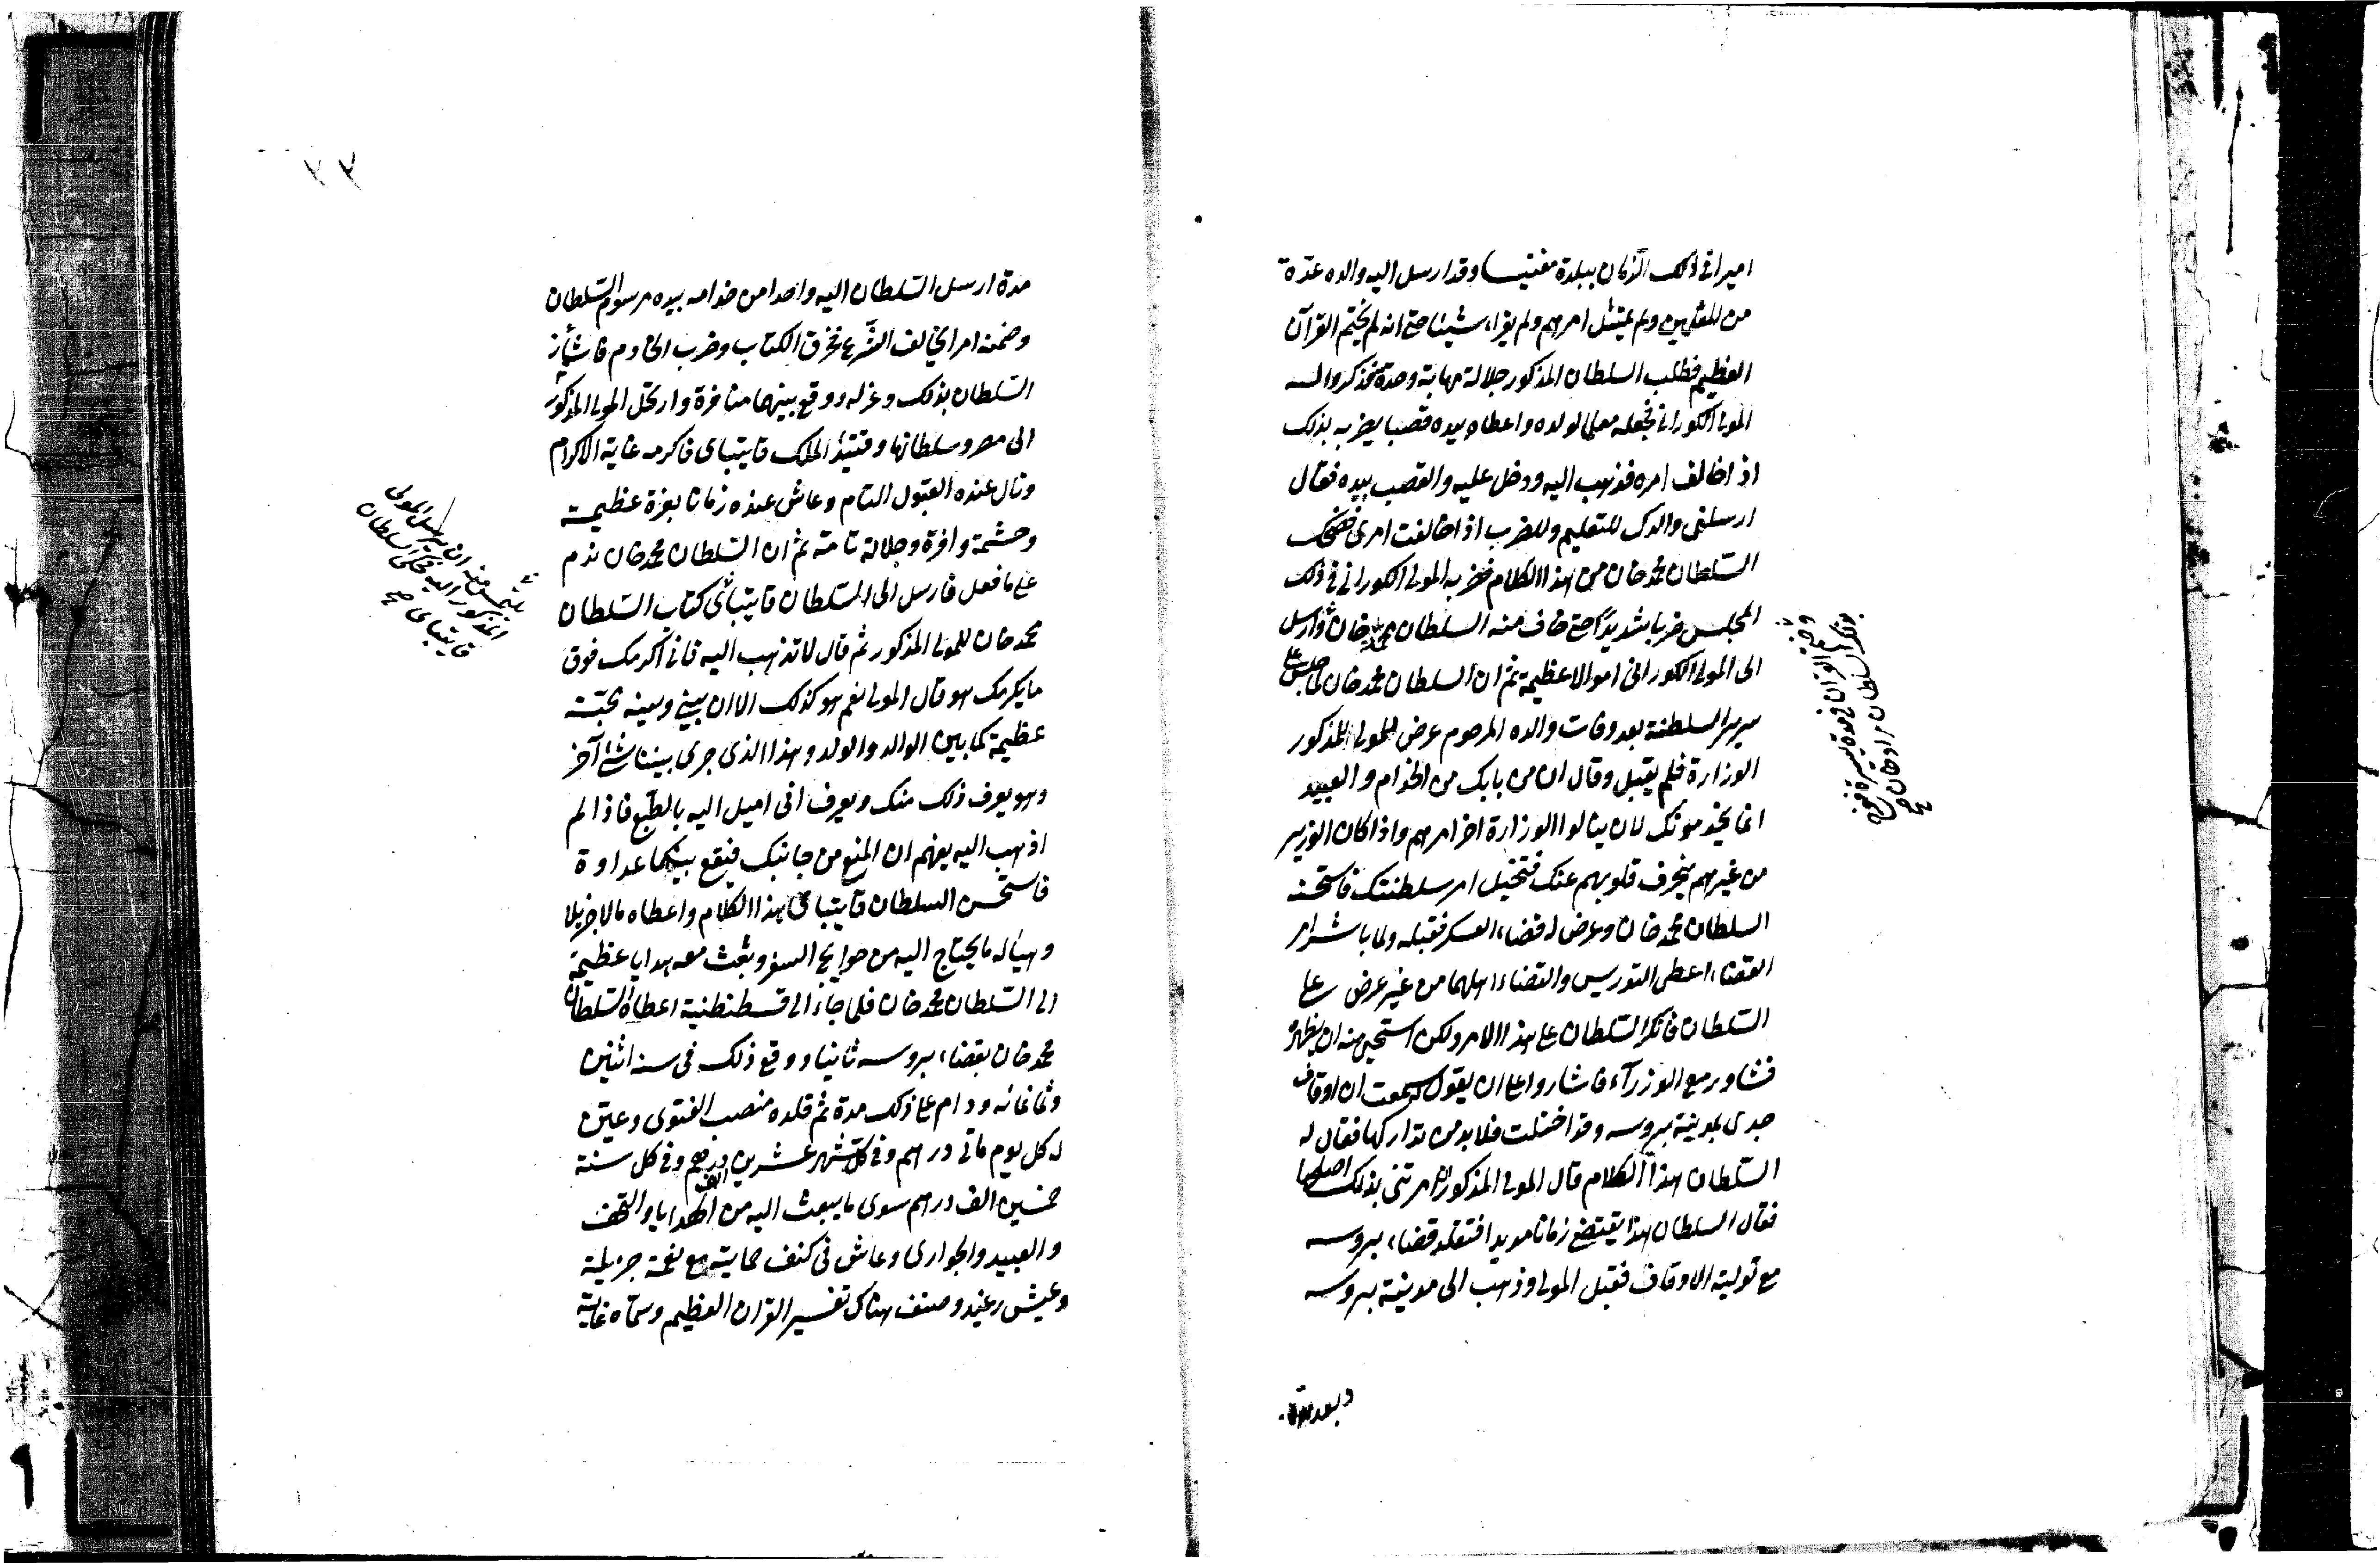 اميرا فى ذلك الزمان ببلدة مغنيسا وقد ارسل اليه والده عدة
من المعلمين ولم يمتثل امرهم ولم يقراء شيئا حتى انه لم يختم القرآن
العظيم فطلب السلطان المذكور جلالة مهابة وحدة فذكروا له
المولى الكورانى فجعله معلما لولده واعطاه بيده قصبا يضربه بذلك
اذا خالف امره فذهب اليه ودخل عليه والقصب بيده فقال
ارسلنى والدك للتعليم وللضرب اذا خالفت امرى فضحك
السلطان محمد خان من هذا الكلام فضربه المولى الكورانى فى ذلك
المجلس ضربا شديدا حتى خاف منه السلطان محمد خان وارسل
وختم القرآن فى مدة يسيرة ففرح
بذلك السلطان مراد خان صح
الى المولى الكورانى اموالا عظيمة ثم ان السلطان محمد خان لما جلس على
سرير السلطنة بعد وفات والده المرحوم عرض للمولى المذكور
الوزارة فلم يقبل وقال ان من بابك من الخدام والعبيد
انما يخدمونك لان ينالوا الوزارة اخر امرهم واذا كان الوزير
من غيرهم ينحرف قلوبهم عنك فتختل امر سلطنتك فاستحسنه
السلطان محمد خان وعرض له قضاء العسكر فقبله ولما باشر امر
القضاء اعطى التدريس والقضاء اهلهما من غير عرض على
السلطان فانكر السلطان على هذا الامر ولكن استحيى منه ان يظهره
فشاور مع الوزرآء فاشاروا على ان يقول سمعت ان اوقاف
جدى بمدينة بروسه وقد اختلت فلا بد من تداركها فقال له
السلطان هذا الكلام قال المولى المذكور ان امرتنى بذلك اصلحها
فقال السلطان هذا يقتضى زمانا مديدا فتقلد قضاء بروسه
مع تولية الاوقاف فقبل المولى وذهب الى مدينة بروسه
وبعد مدة
مدة ارسل السلطان اليه واحدا من خدامه بيده مرسوم السلطان
وضمنه امرا يخالف الشرع فخرق الكتاب وضرب الخادم فاشمأز
السلطان بذلك وعزله ووقع بينهما منافرة وارتحل المولى المذكور
الى مصر وسلطانها وقتئذ الملك قايتباى فاكرمه غاية الاكرام
ونال عنده القبول التام وعاش عنده زمانا بعزة عظيمة
وحشمة وافرة وجلالة تامة ثم ان السلطان محمد خان ندم
على ما فعل فارسل الى السلطان قايتباى كتاب السلطان
يلتمس منه ان يرسل المولى
المذكور اليه فحكى السلطان
قايتباى صح
محمد خان للمولى المذكور ثم قال لا تذهب اليه فانى اكرمك فوق
ما يكرمك هو قال المولى نعم هو كذلك الا ان بينى وبينه محبة
عظيمة كما بين الوالد والولد وهذا الذى جرى بيننا شئ آخر
وهو يعرف ذلك منك ويعرف انى اميل اليه بالطبع فاذا لم
اذهب اليه يفهم ان المنع من جانبك فيقع بينكما عداوة
فاستحسن السلطان قايتباى هذا الكلام واعطاه مالا جزيلا
وهيأ له ما يحتاج اليه من حوايج السفر وبعث معه هدايا عظيمة
الى السلطان محمد خان فلما جاء الى قسطنطنية اعطاه السلطان
محمد خان بقضاء بروسه ثانيا ووقع ذلك فى سنه اثنين
وثمانمائه ودام على ذلك مدة ثم قلده منصب الفتوى وعين
له كل يوم مائتى دراهم وفى كل شهر عشرين الف درهم وفى كل سنة
خمسين الف دراهم سوى ما يبعث اليه من الهدايا والتحف
والعبيد والجوارى وعاش فى كنف حمايته مع نعمة جزيلة
وعيش رغيد وصنف هناك تفسير القران العظيم وسماه غاية